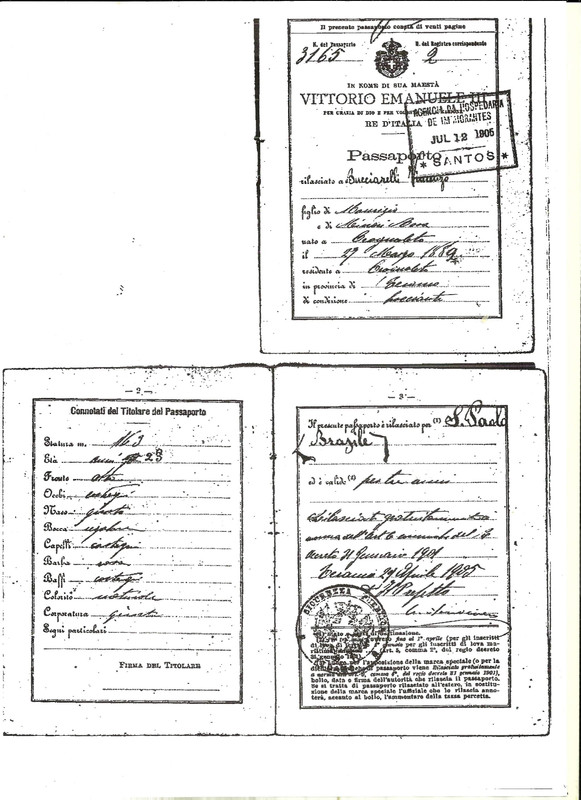 Il presente passaporto consta di venti pagine
N. del Passaporto
N. del Registro corrispondente
3165
2
IN NOME DI SUA MAESTÀ
VITTORIO EMANUELE III
PER GRAZIA DI DIO E PER VOLONTÀ DELLA NAZIONE
RE D'ITALIA
AGENCIA DA HOSPEDARIA
DE IMMIGRANTES
JUL 12 1905
* SANTOS *
Passaporto
rilasciato a Bucciarelli Vincenzo
figlio di Maurizio
e di
nato a
il 27 Marzo
residente a
in provincia di Teramo
di condizione bracciante
— 2 —
Connotati del Titolare del Passaporto
Statura m. 1.63
Età anni 23
Fronte alta
Occhi castagni
Naso giusto
Bocca regolare
Capelli castagni
Barba rasa
Baffi castagni
Colorito naturale
Corporatura giusta
Segni particolari
FIRMA DEL TITOLARE
— 3 —
Il presente passaporto è rilasciato per (1) S. Paolo
(Brasile)
ed è valido (2) per tre anni
Rilasciato gratuitamente a
norma dell'art. 6 comma del R.
decreto 31 Gennaio 1901
Teramo 29 Aprile 1905
Il Prefetto
SICUREZZA
Stato di destinazione.
fino al 1° aprile (per gli inscritti
di leva di
gennaio per gli inscritti di leva ma-
(art. 5, comma 2°, del regio decreto
per l'apposizione della marca speciale (o per la
di passaporto viene Rilasciato gratuitamente
a norma comma 6°, del regio decreto 31 gennaio 1901),
bollo, data e firma dell'autorità che rilascia il passaporto.
Se si tratta di passaporto rilasciato all'estero, in sostitu-
zione della marca speciale l'ufficiale che lo rilascia anno-
terà, accanto al bollo, l'ammontare della tassa percetta.